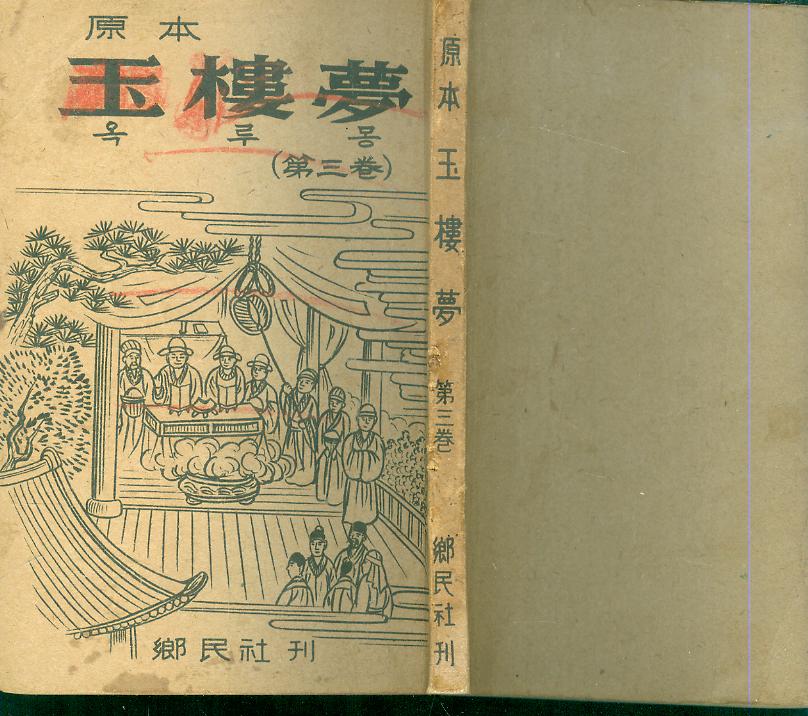 原本
玉樓夢
옥루몽
(第三巻)
鄕民社 刊
原本 玉樓夢 第三巻 鄕民社刊